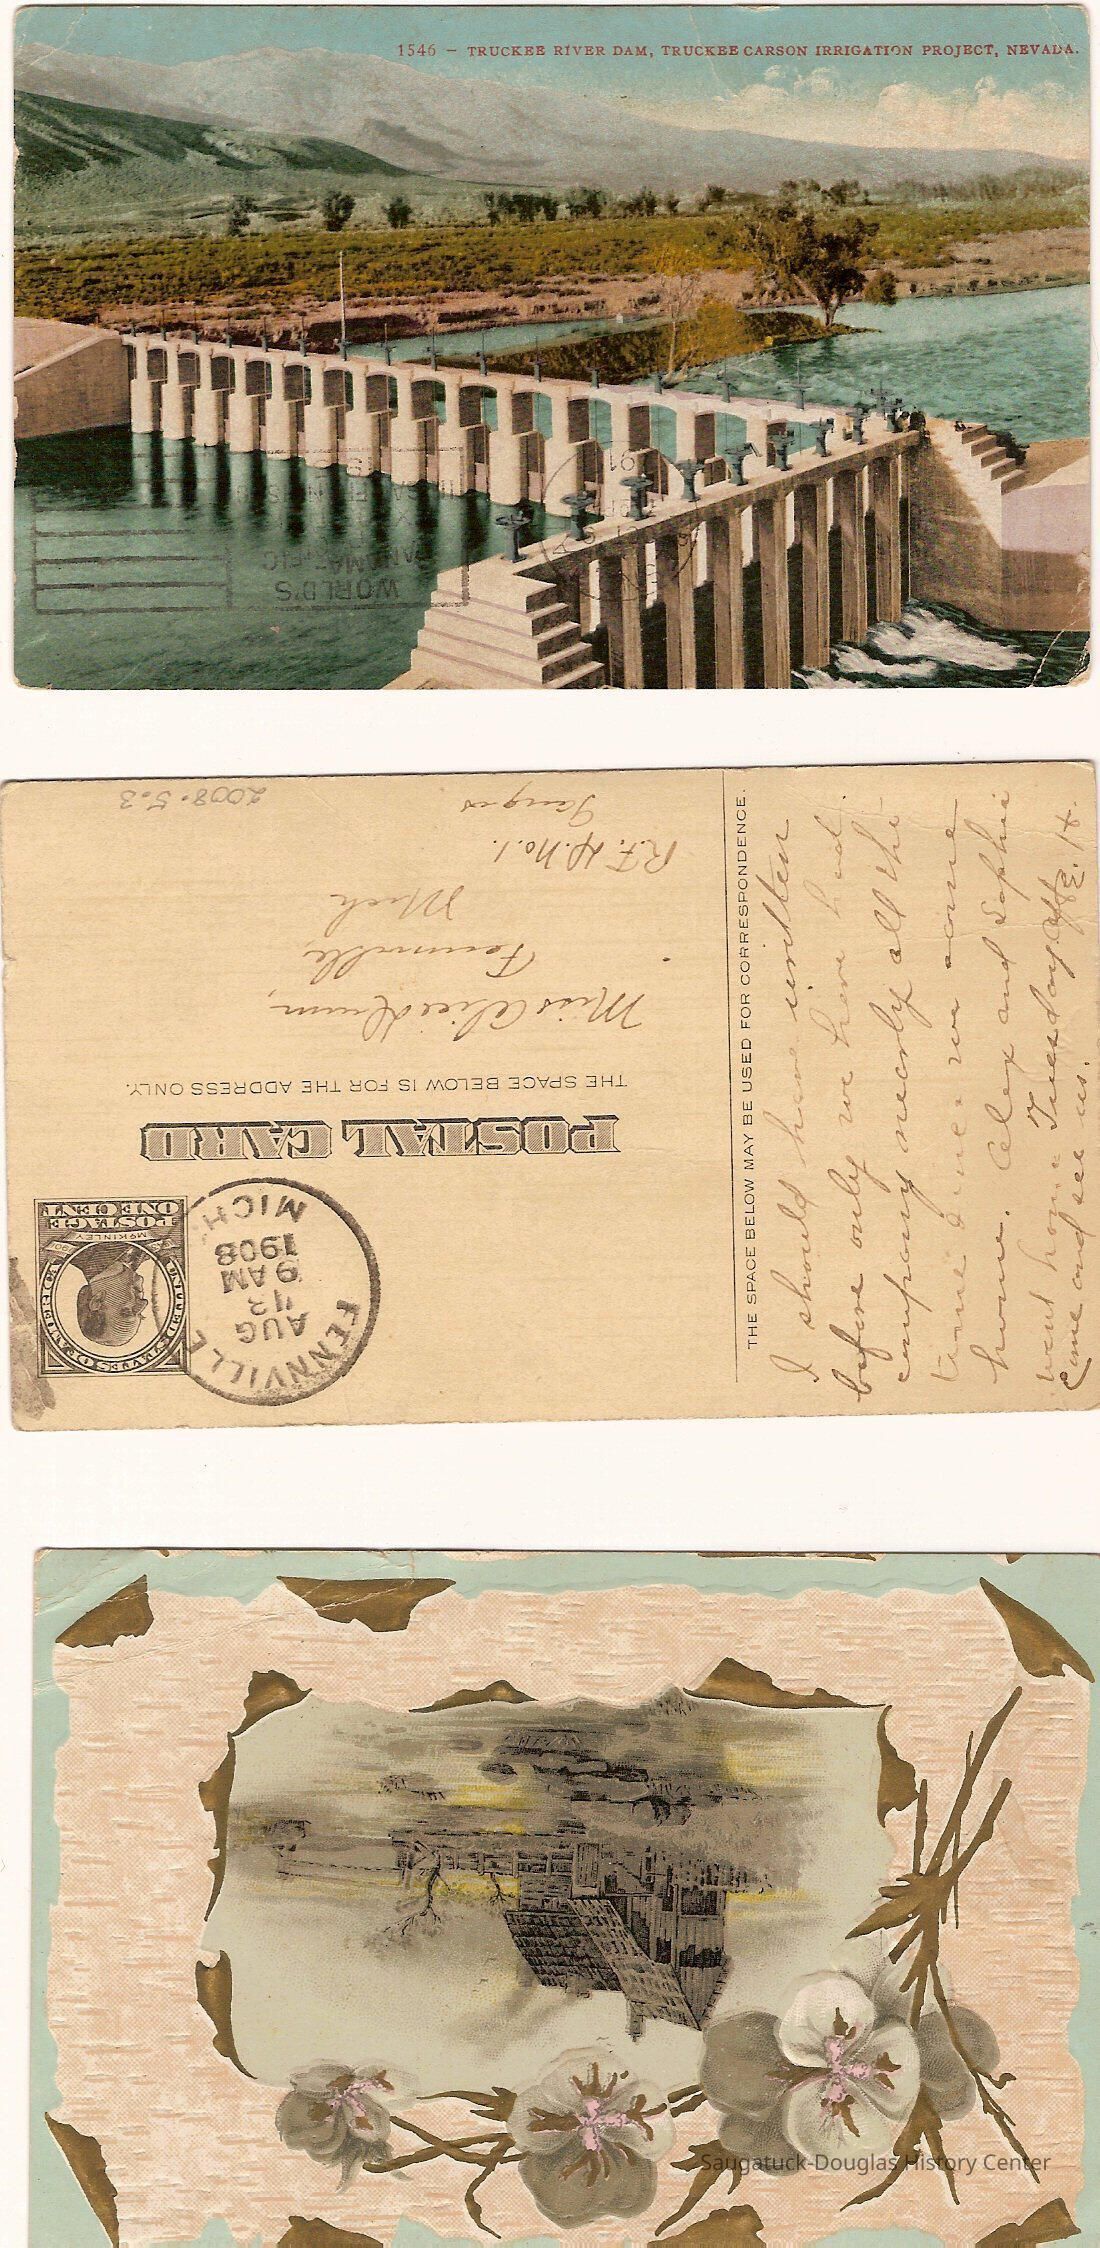 1546 – TRUCKEE RIVER DAM, TRUCKEE CARSON IRRIGATION PROJECT, NEVADA.
WORLD'S
PANAMA PACIFIC
2008.5.3
POSTAL CARD
THE SPACE BELOW IS FOR THE ADDRESS ONLY.
Miss Alice
Fennville
Mich
R.F.D. No. 1.
Ganges
FENNVILLE
AUG
12
9 AM
1908
MICH.
McKINLEY
POSTAGE
ONE CENT
THE SPACE BELOW MAY BE USED FOR CORRESPONDENCE.
I should have written
before only we have had
company nearly all the
time since we came
home. Alex and Sophia
went home Tuesday
Come and see us.
Saugatuck-Douglas History Center